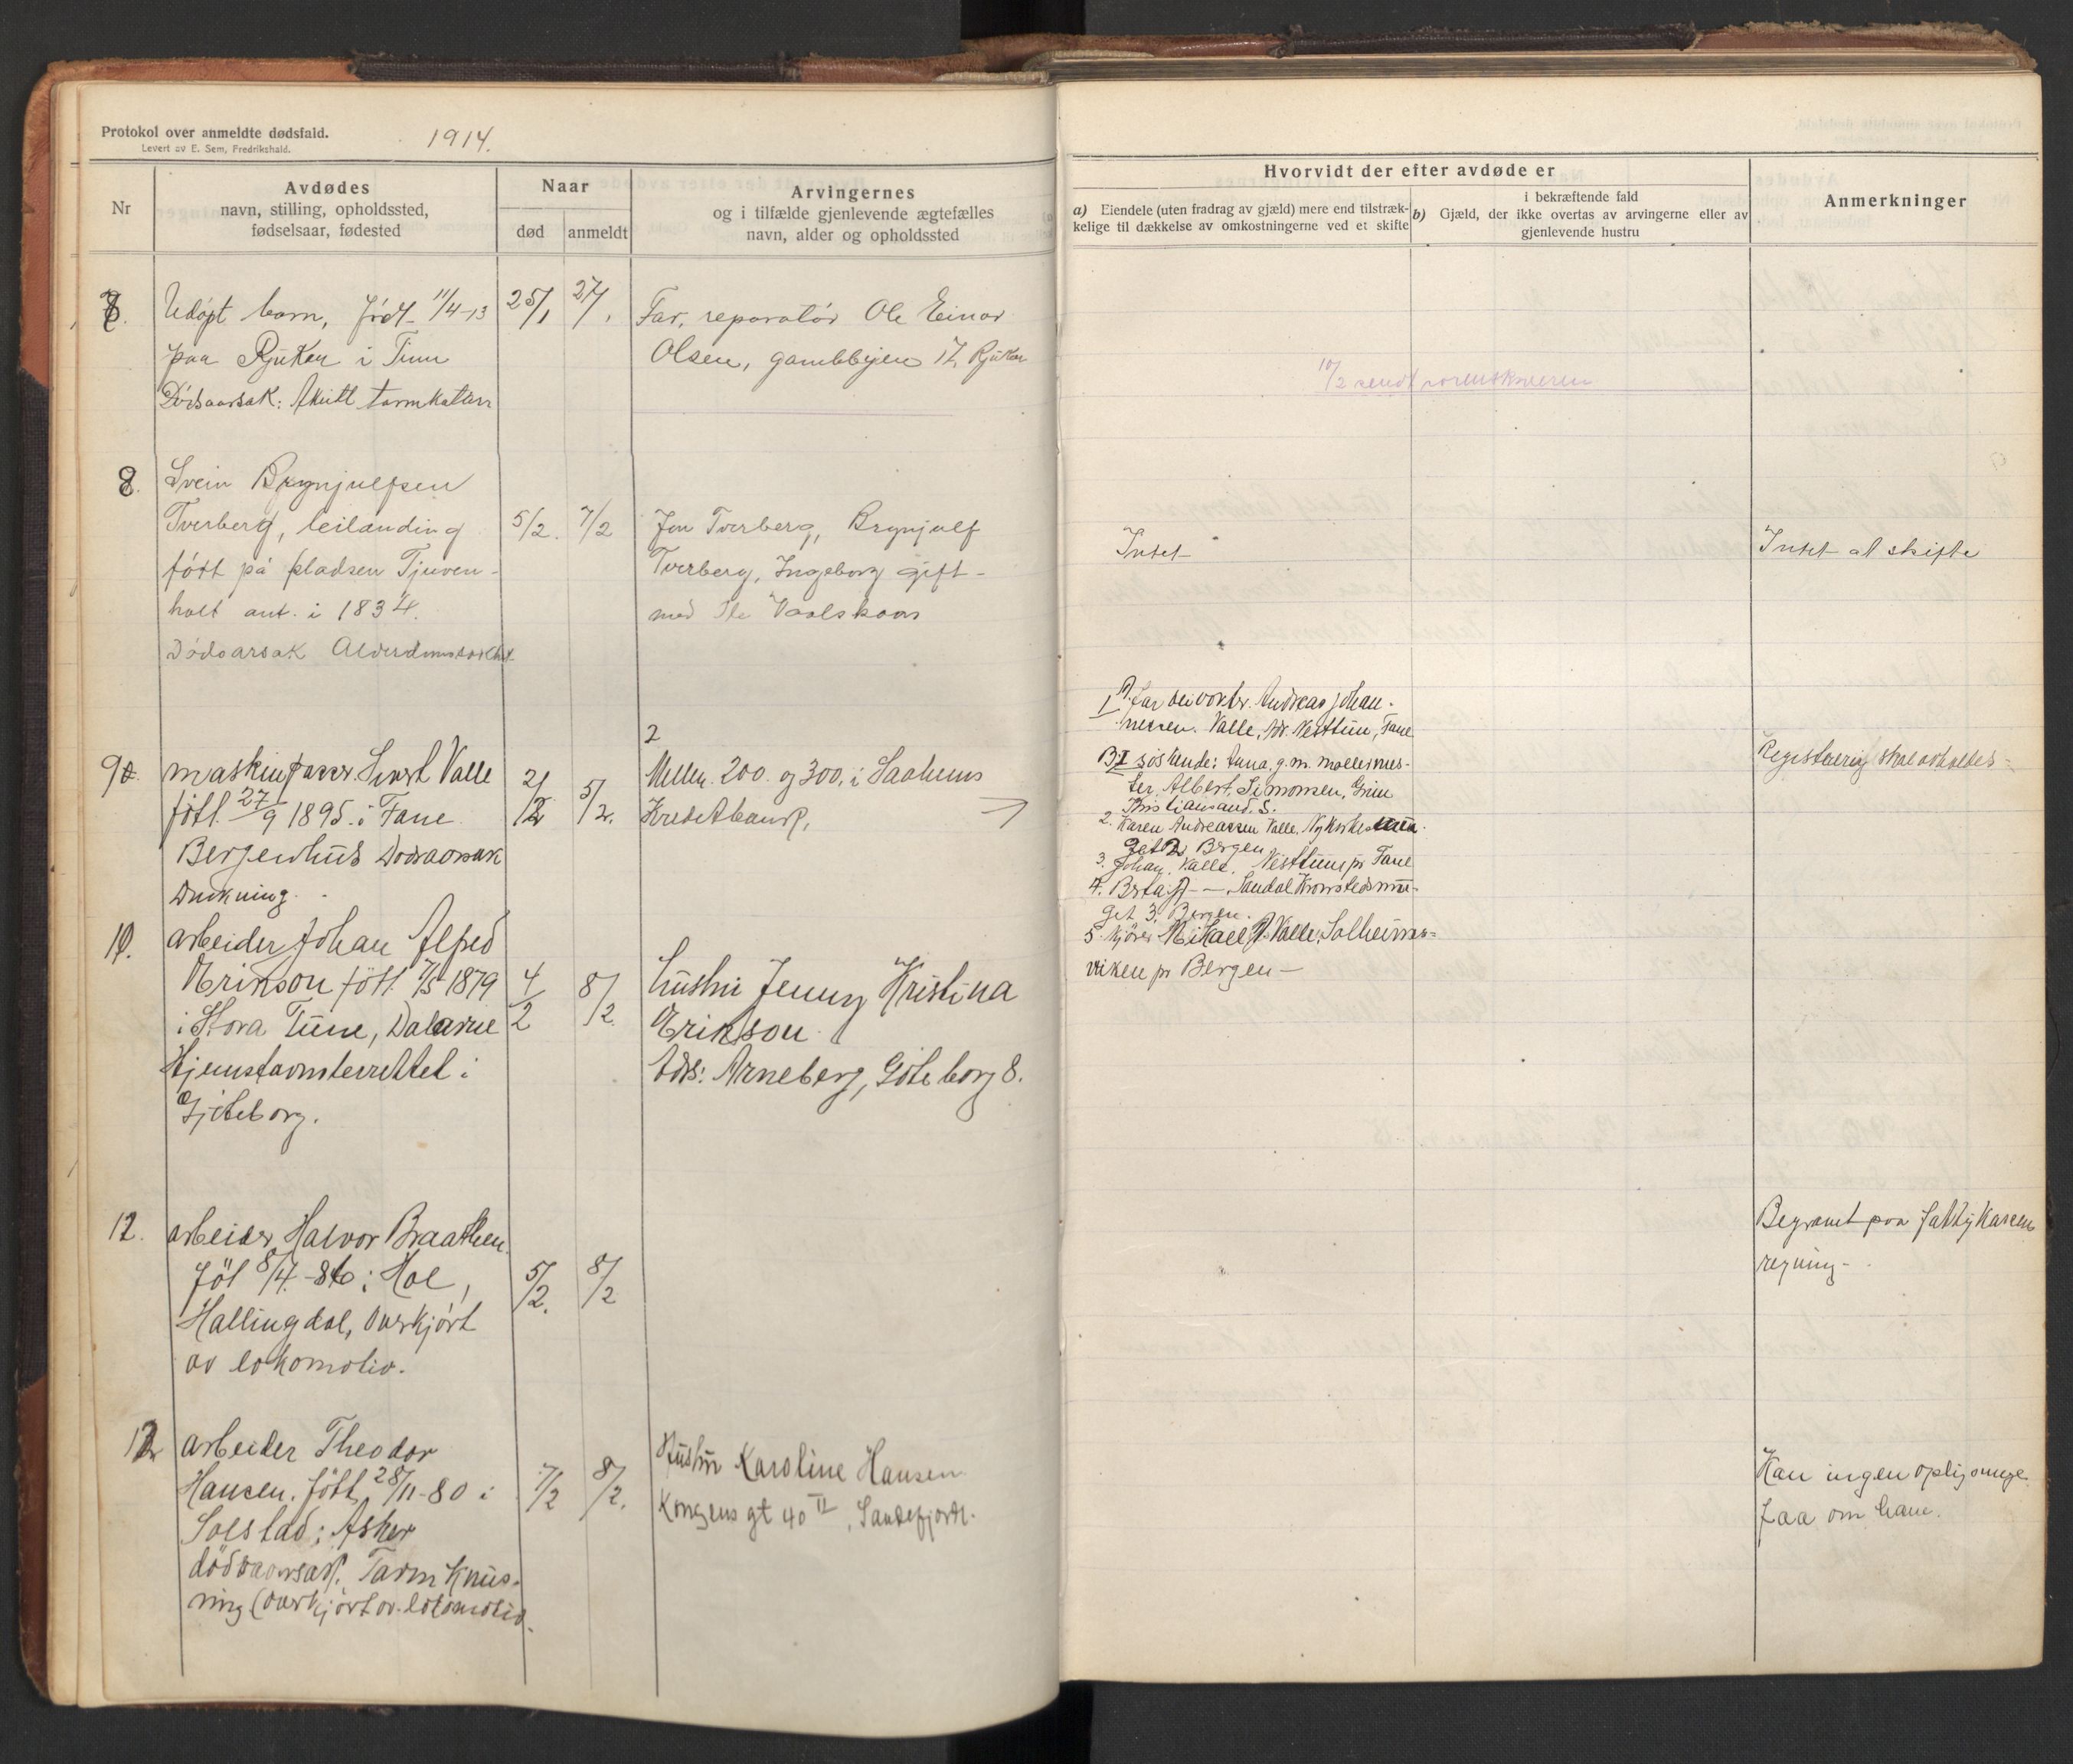 Protokol over anmeldte dødsfald.
Levert av E. Sem, Fredrikshald.
1914.
Nr
Avdødes
navn, stilling, opholdssted,
fødselsaar, fødested
Naar
død
anmeldt
Arvingernes
og i tilfælde gjenlevende ægtefælles
navn, alder og opholdssted
Hvorvidt der efter avdøde er
a) Eiendele (uten fradrag av gjæld) mere end tilstræk-
kelige til dækkelse av omkostningerne ved et skifte
i bekræftende fald
b) Gjæld, der ikke overtas av arvingerne eller av
gjenlevende hustru
Anmerkninger
Udøpt barn, født 11/4-13
paa Rjukan i Tinn
Dødsaarsak: Akutt tarmkatarr
25/1
27/1
Far, reparatør Ole Einar
Olsen, gamlebyen 17, Rjukan
10/2 sendt sorenskriveren
8.
Svein Brynjulfsen
Tverberg, leilanding
født på pladsen Tjuven-
holt ant. i 1834.
Dødsarsak Alderdomssvakhet
5/2.
7/2
Jon Tverberg, Brynjulf
Tverberg, Ingeborg gift
med Ole Vaalskaar
Intet
Intet at skifte
9.
maskinpasser Sivert Valle
født 27/9 1895 i Fane
Bergenhus Dødsaarsak
Drukning.
2/2
5/2.
2
Mellem 200 og 300 i Saaheims
Kreditbank.
I A. Far Andreas Johan-
nessen Valle, Adr. Nesttun, Fane
B II søskende: Anna, g.m. møllemes-
ter Albert Simonsen, Grim
Kristiansand. S.
2. Karen Andreassen Valle, Nykirke
Bergen
3. Johan Valle, Nesttun pr Fane
4. Berta A — Sandal Kronstedsmu-
get 3. Bergen.
5. kjører Mikael A. Valle, Solheims-
viken pr Bergen —
Registrering skal avholdes
10.
arbeider Johan Alfred
Erikson født 7/5 1879
i Stora Tune, Dalarne
Hjemstavnsberettet i
Gjøteborg.
4/2
8/2.
hustru Jenny Kristina
Erikson
Adr: Arneberg, Göteborg 8.
12.
arbeider Halvor Braathen.
föt 8/4-86 i Hol,
Hallingdal, Overkjørt
av lokomotiv.
5/2.
8/2
Begravet paa fattigkassens
regning
arbeider Theodor
Hansen. født 28/11-80 i
Solstad i Asker
dødsaarsak. Tarmknus-
ning (overkjørt av lokomotiv.
7/2
8/2.
Hustru Karoline Hansen
Kongens gt 40 II, Sandefjord.
Kan ingen oplysninge
faa om ham.